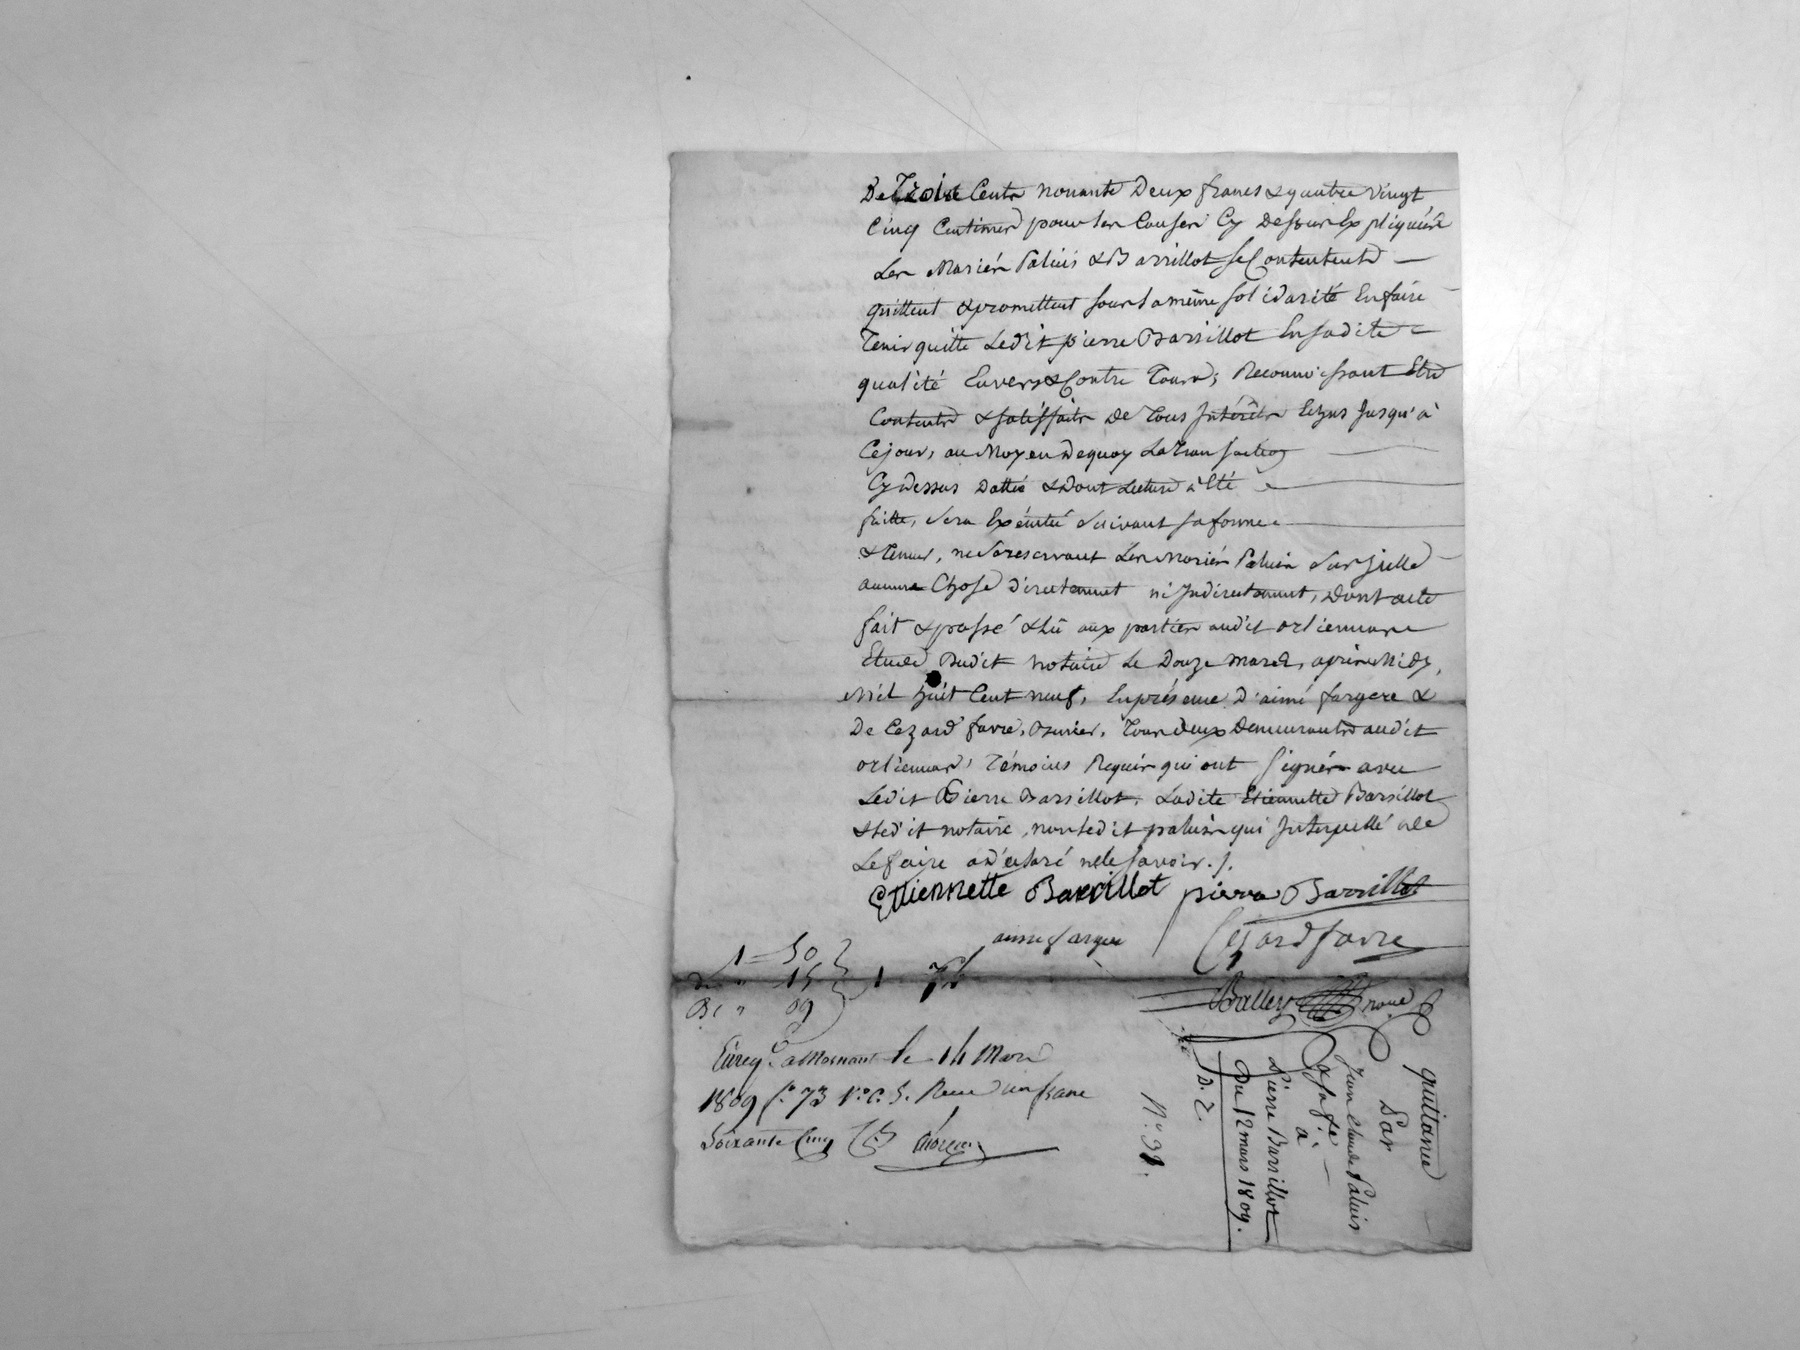 De Trois Cents nonante Deux francs & quatre vingt
Cinq Centimes pour les Causes Cy Dessus Expliquées
Les Mariés Paluis & Barrillot se Contentents
quittent & promettent sous la même solidarité En faire
Tenir quitte Ledit pierre Barrillot En sadite
qualité Envers & Contre Tous; Reconnoissant Etre
Contents & satisfaits De Tous Intérêts Echus Jusqu'à
Cejour, au Moyen Dequoy La Transaction
Cy Dessus Dattée & Dont Lecture à Eté
faitte, sera Exécutée suivant sa forme
& teneur, ne se reservant Les Mariés Paluis sur Icelle
aucune Chose Directement ni Indirectement, Dont acte
fait & passé & Lû aux parties audit orlienuas
Etude Dudit notaire Le Douze mars, après Midy,
Mil huit Cent neuf, En présence D'aimé fargere &
De Cezard favre, Tous deux Demeurants audit
orlienuas, Témoins Requis qui ont signés avec
Ledit Pierre Barrillot, Ladite Etiennette Barrillot
& Ledit notaire, non Ledit paluis qui Interpellé de
Le faire a Déclaré ne le savoir ./.
Ettiennette Barrillot pierre Barrillot
aimé fargere Cezard favre
1 = 50
" 15 } 1 - 74
" 09
Balley nore
Enreg.é a Mornant le 14 Mars
1809 f.o 73 v.o c. 5. Recu un franc
Soixante Cinq C.s
quittance
Par
Jean Claude Paluis
& sa fe
à
Pierre Barrillot
Du 12 mars 1809.
D. T.
N.o 39.